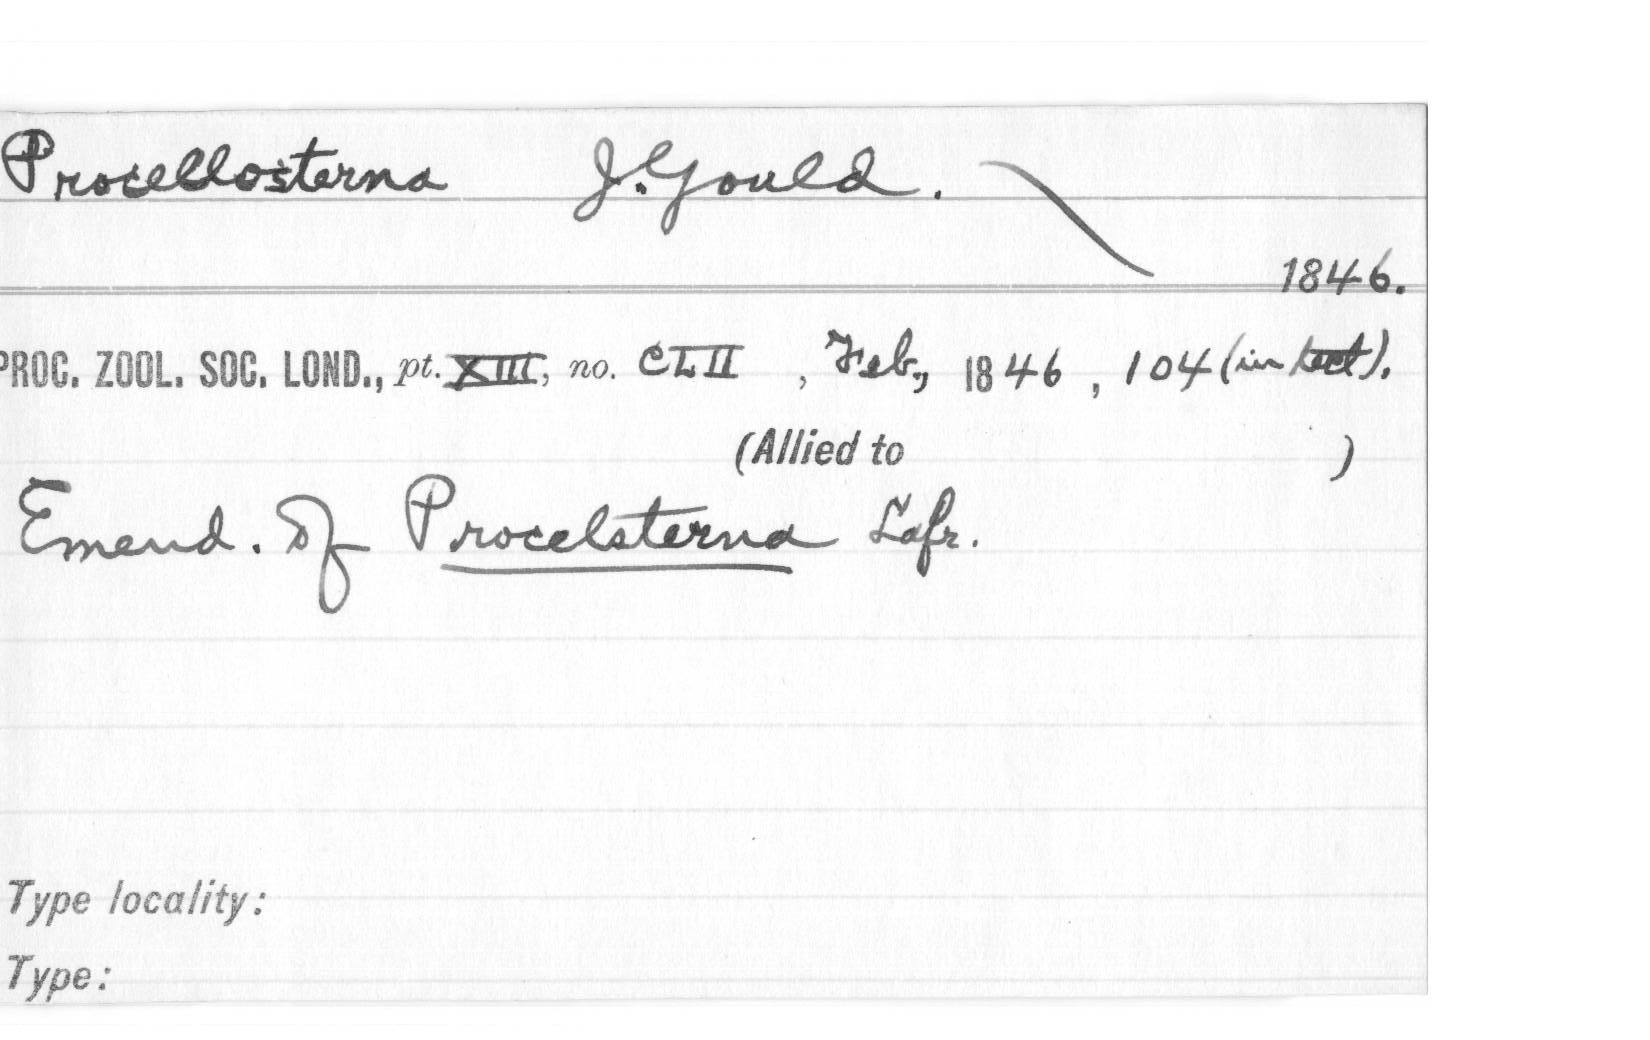 Procellosterna J. Gould.
1846.
PROC. ZOOL. SOC. LOND., pt. XIII, no. CLII , Feb., 1846 , 104 (in text).
(Allied to )
Emend. of Procelsterna Lafr.
Type locality:
Type: